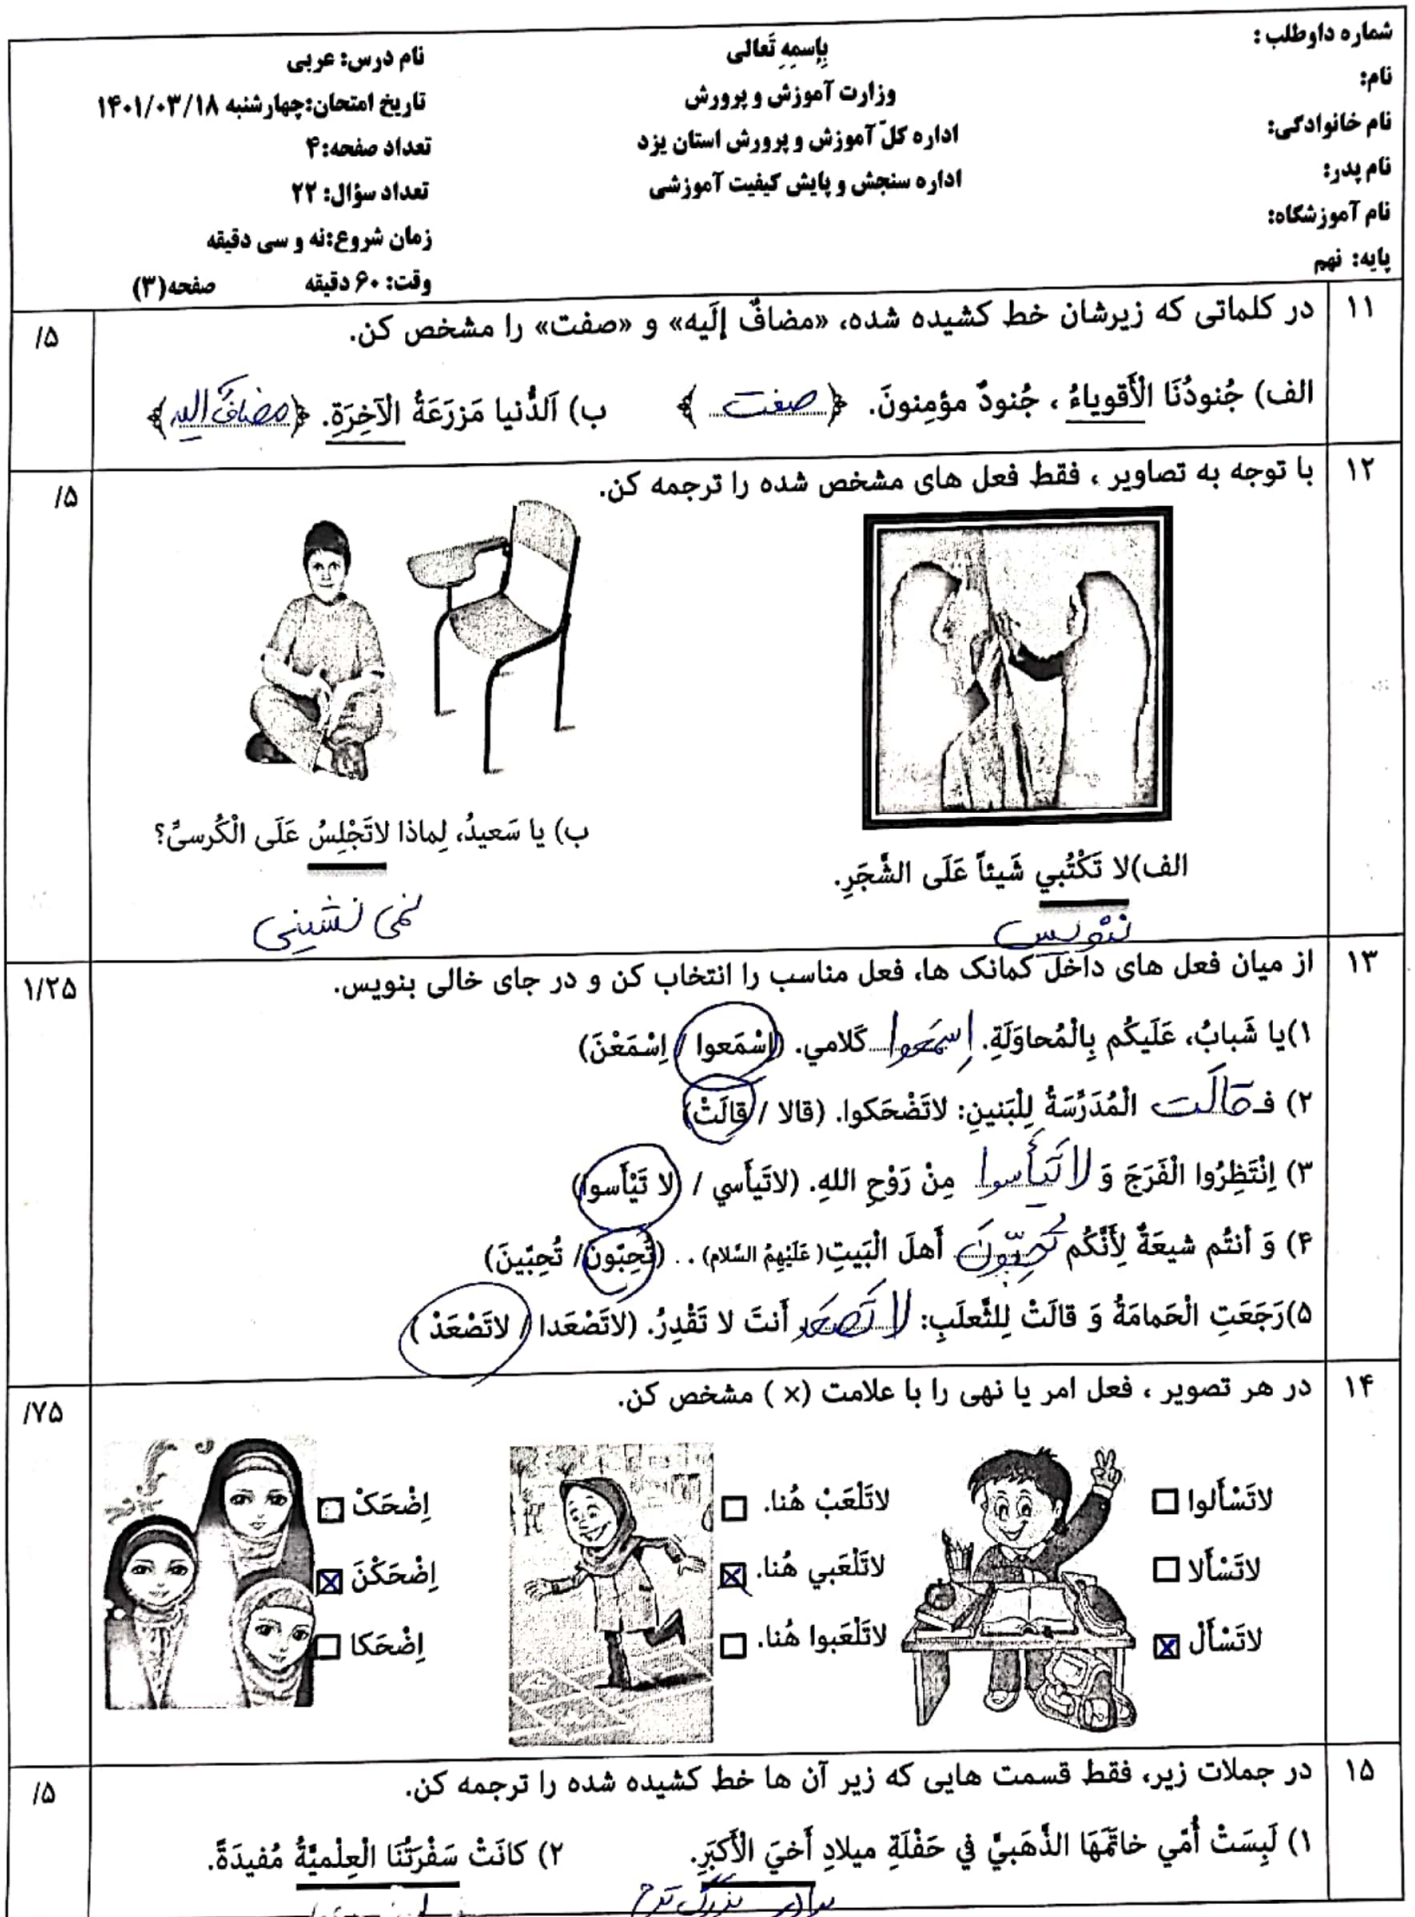 شماره داوطلب :
نام:
نام خانوادگی:
نام پدر:
نام آموزشگاه:
پایه: نهم
بِإسمِهِ تَعالی
وزارت آموزش و پرورش
اداره کلّ آموزش و پرورش استان یزد
اداره سنجش و پایش کیفیت آموزشی
نام درس: عربی
تاریخ امتحان:چهارشنبه ۱۴۰۱/۰۳/۱۸
تعداد صفحه:۴
تعداد سؤال: ۲۲
زمان شروع:نه و سی دقیقه
وقت: ۶۰ دقیقه صفحه(۳)
۱۱ در کلماتی که زیرشان خط کشیده شده، «مضافٌ إلَیه» و «صفت» را مشخص کن. /۵
الف) جُنودُنَا الْأَقویاءُ ، جُنودٌ مؤمِنونَ. ﴿ صفت ﴾ ب) اَلدُّنیا مَزرَعَةُ الْآخِرَةِ. ﴿ مضافٌ الیه ﴾
۱۲ با توجه به تصاویر ، فقط فعل های مشخص شده را ترجمه کن. /۵
الف)لا تَكْتُبي شَیئاً عَلَی الشَّجَرِ.
ننویس
ب) یا سَعیدُ، لِماذا لاتَجْلِسُ عَلَی الْکُرسیِّ؟
نمی نشینی
۱۳ از میان فعل های داخل کمانک ها، فعل مناسب را انتخاب کن و در جای خالی بنویس. ۱/۲۵
۱)یا شَبابُ، عَلَیکُم بِالْمُحاوَلَةِ. اِسمَعوا کَلامي. (اِسْمَعوا / اِسْمَعْنَ)
۲) فـ قالَت الْمُدَرِّسَةُ لِلْبَنینِ: لاتَضْحَکوا. (قالا / قالَتْ)
۳) اِنْتَظِرُوا الْفَرَجَ وَ لا تَیأَسوا مِنْ رَوْحِ اللهِ. (لاتَیأَسي / لا تَیْأَسوا)
۴) وَ أنتُم شیعَةٌ لِأَنَّکُم تُحِبّونَ أَهلَ الْبَیتِ( عَلَیْهِمُ السَّلام) . . (تُحِبّونَ/ تُحِبّینَ)
۵)رَجَعَتِ الْحَمامَةُ وَ قالَتْ لِلثَّعلَبِ: لا تَصعَد أَنتَ لا تَقْدِرُ. (لاتَصْعَدا / لاتَصْعَدْ )
۱۴ در هر تصویر ، فعل امر یا نهی را با علامت (×) مشخص کن. /۷۵
لاتَسْأَلوا □ لاتَلْعَبْ هُنا. □ اِضْحَکْ □
لاتَسْأَلا □ لاتَلْعَبي هُنا. ☒ اِضْحَکْنَ ☒
لاتَسْأَلْ ☒ لاتَلْعَبوا هُنا. □ اِضْحَکا □
۱۵ در جملات زیر، فقط قسمت هایی که زیر آن ها خط کشیده شده را ترجمه کن. /۵
۱) لَبِسَتْ أُمّي خاتَمَهَا الذَّهَبيَّ في حَفْلَةِ میلادِ أَخيَ الْأَکبَرِ. ۲) کانَتْ سَفْرَتُنَا الْعِلْمیَّةُ مُفیدَةً.